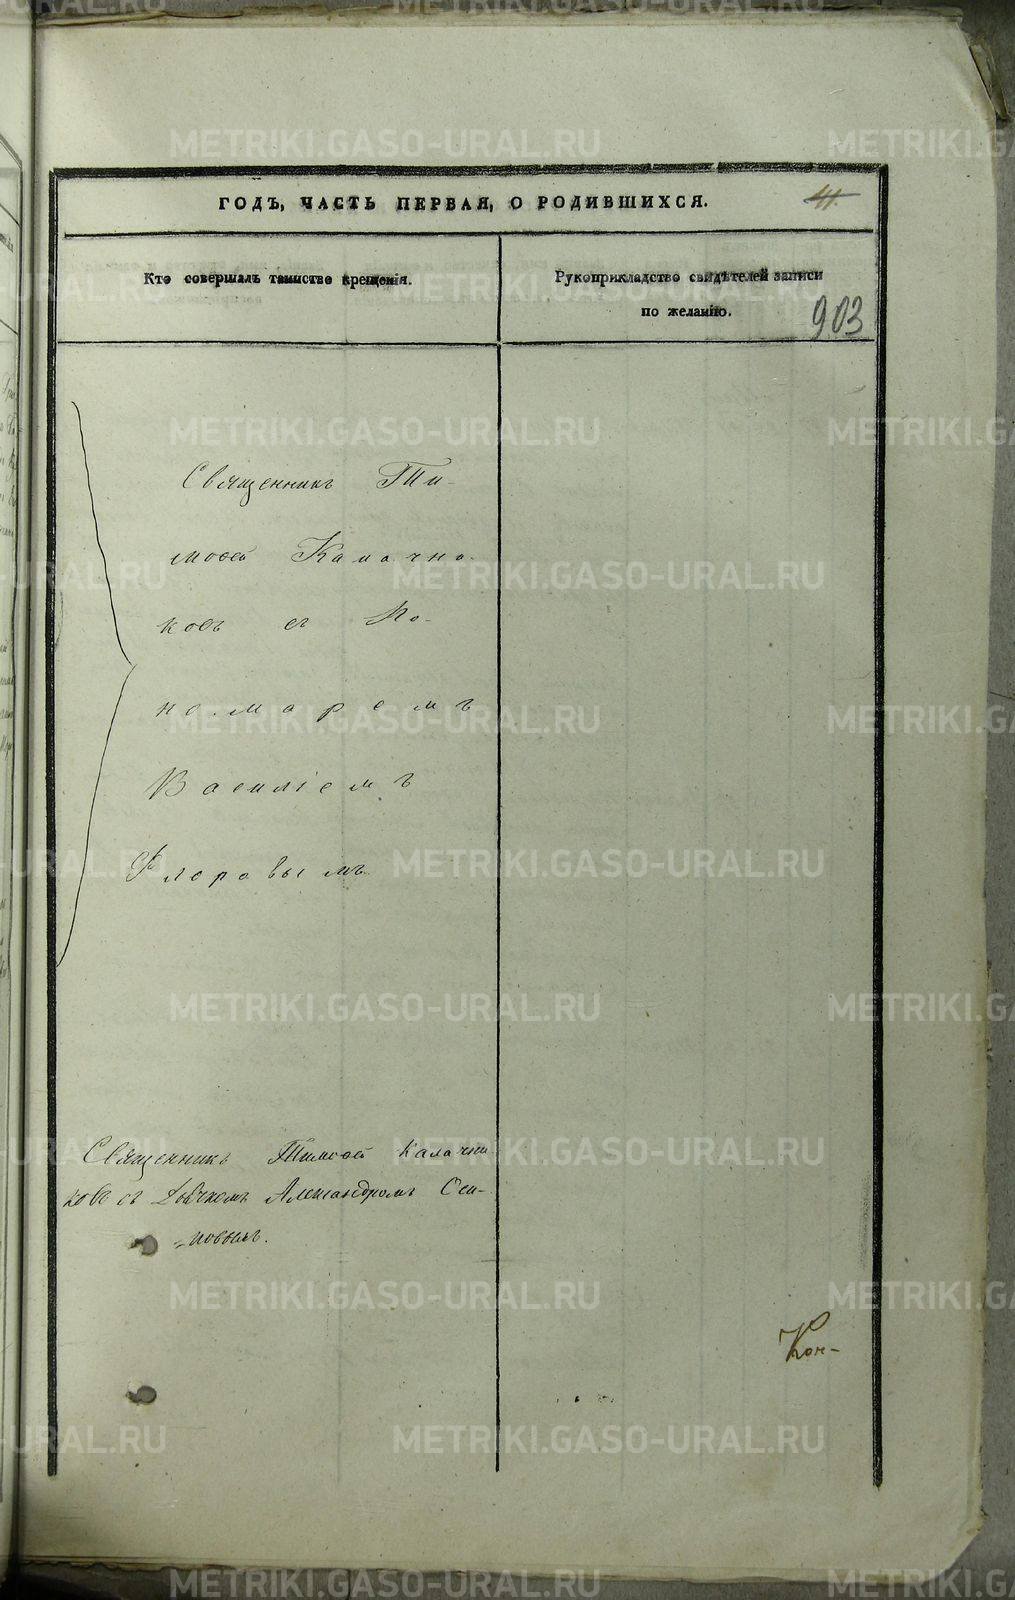 ГОДЪ, ЧАСТЬ ПЕРВАЯ, О РОДИВШИХСЯ.
41.
Кто совершалъ таинство крещенія.
Рукоприкладство свидѣтелей записи
по желанію.
903
Священникъ Ти-
моѳей Калачни-
ковъ съ По-
номаремъ
Василіемъ
Флоровымъ
Священникъ Тимоѳей Калачни
ковъ съ Дьячкомъ Александромъ Оси-
повымъ.
Кон-
METRIKI.GASO-URAL.RU